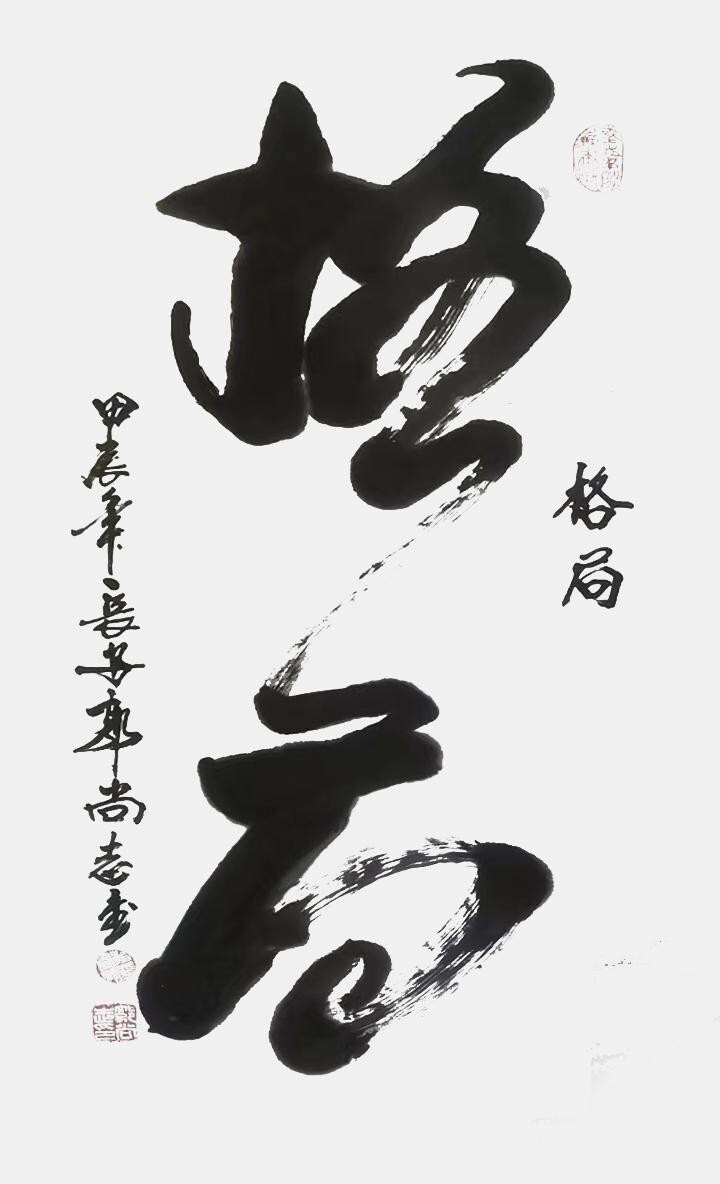 格局
格局
甲辰年長安郭尚志書